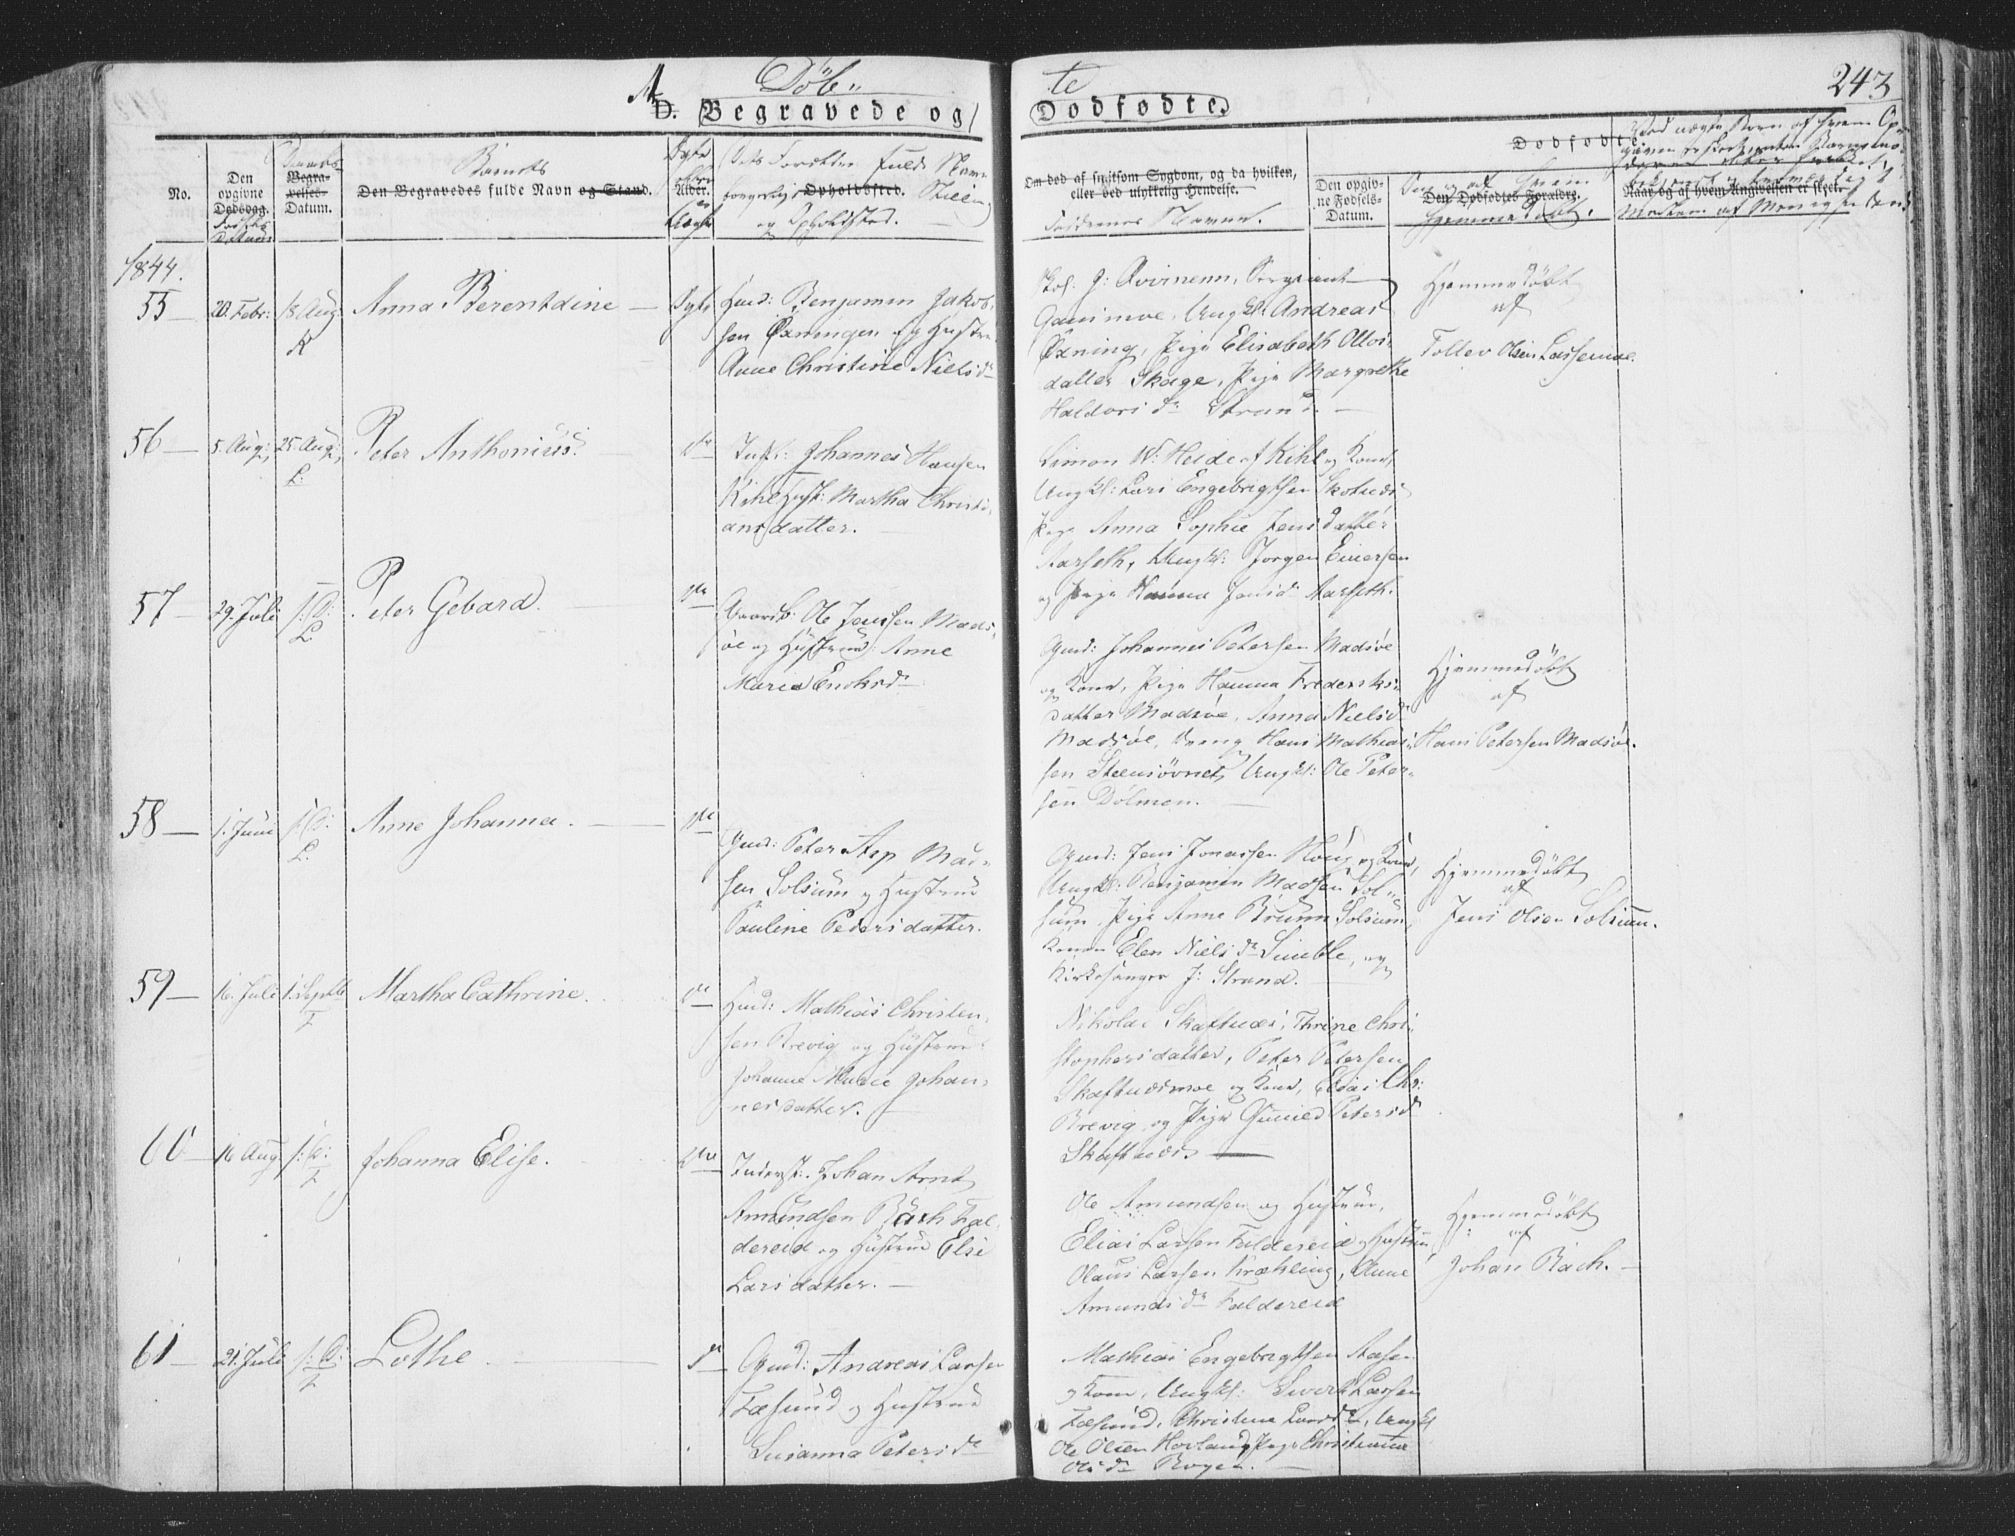 A. Döb-
te
243
D. Begravede og
Dodfodte.
No.
Den opgivne Dødsdag.
Daabs-
Begravelses-Datum.
Barnets
Den Begravedes fulde Navn og Stand.
Alder.
Opholdssted.
og Opholdsted.
Om død af smitsom Sygdom, og da hvilken, eller ved ulykkelig Hendelse.
Faddernes Navne.
Dodfodte
Den opgivne Fødsels-Datum.
Den Dødfødtes Forældre.
Hjemmedöbt.
Naar og af hvem Angivelsen er skeet.
1844.
55
20. Febr:
18 Aug
K
Anna Berentdine
Ægte
Huusm: Benjamin Jakob-
sen Öxningen og Hustru
Anne Christine Nielsdr
Andreas
Öxning, Pige Elisabeth
datter Skage, Pige Margrethe
Haldorsdr Strand.
Hjemmedöbt
af
Tollev Olsen
56
5. Aug:
25. Aug:
L:
Peter Anthonius.
do
Inds: Johannes Hansen
Kihl Hust: Martha Christi-
ansdatter.
Simon W: Heide af Kihl og Kone,
Ungkl: Lars Engebrigtsen Skotnæs
Pige Anna Sophie Jensdatter
Aarseth, Ungkl: Jorgen Einersen
og Pige Hanna Jensdr Aarseth.
57
29. Juli
s: D:
L:
Peter Gebard.
do
Gaardb: Ole Jenssen Mads-
öe og Hustrue Anne
Maria Enoksdr
Gmd: Johannes Petersen Madsöe
og Kone, Pige Hanna Frederiks-
datter Madsöe, Anna Nielsdr
Madsöe, Dreng Hans Mathias-
sen Steensövnet, Ungkl: Ole Peter-
sen Dolmen.
Hjemmedöbt
af
Hans Petersen Madsöe.
58
1. Juni
s: D:
L:
Anne Johanna.
do
Gmd: Peter Asp Mad-
sen Solsum og Hustrue
Pauline Pedersdatter.
Gmd: Jens Jonassen Houg og Kone,
Ungkl: Benjamin Madsen Sol-
sum, Pige Anne Brunn Solsum,
Konen Elen Nielsdr Sande, og
Kirkesanger J: Strand.
Hjemmedöbt
af
Jens Olsen Solsum.
59
16. Juli
1. Septb
F
Martha Cathrine.
do
Huusm: Mathias Christen-
sen Brevig og Hustrue
Johanne Marie Johan-
nesdatter.
Nikolai Skaftnæs, Thrine Chri-
stophersdatter, Peter Petersen
Skaftnæsmoe og Kone, Elias Chr:
Brevig og Pige Gunild Petersdr
Skaftnæs.
60
16 Aug
s: D:
F
Johanna Elise.
do
Inderst: Johan Arnt
Amundsen Bach Fal-
dereid og Hustrue Elsi
Larsdatter.
Ole Amundsen og Hustrue,
Elias Larsen Faldereid og Hustru
Olaus Larsen Kræhling, Anne
Amundsdr Faldereid
Hjemmedöbt
af
Johan Bach.
61
21. Juli
s: D:
F
Lothe.
do
Gmd: Andreas Larsen
Fæsund og Hustrue
Susanna Petersdr
Mathias Engebrigtsen Aasen
og Kone, Ungkl: Sivert Larsen
Fæsund, Christine Larsdr, Ungkl
Ole Olsen Hovland, Pige Christianna
Olsdr